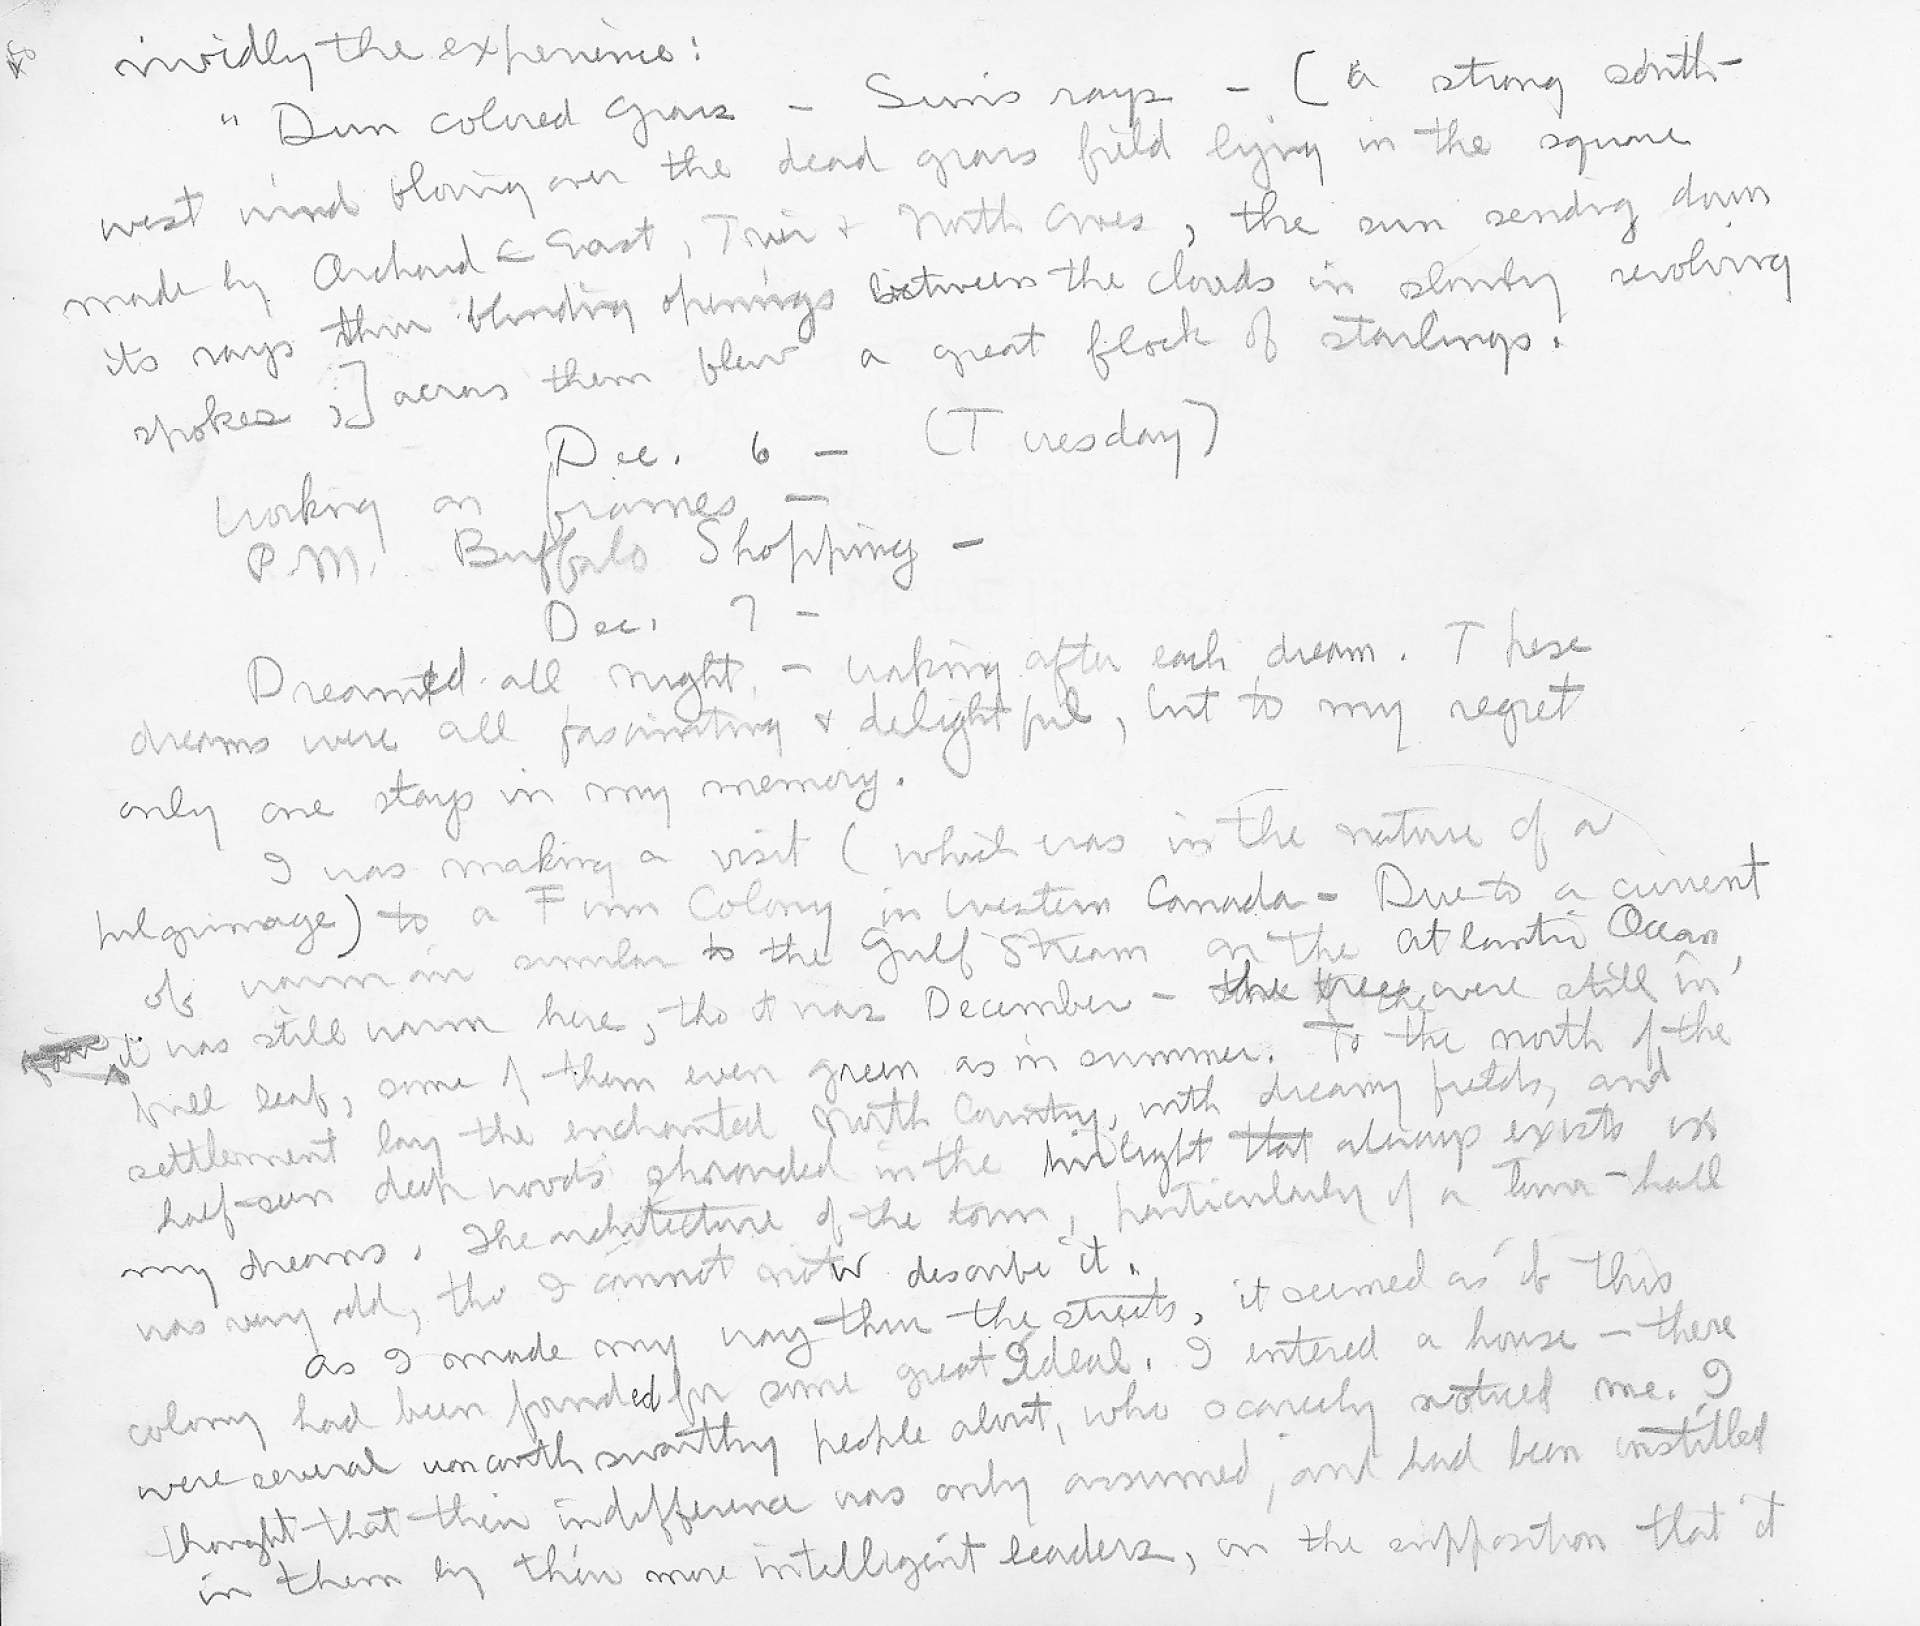 vividly the experience:
"Dun colored grass – Sun's rays – (a strong south-
west wind blowing over the dead grass field lying in the square
made by Orchard & East, Trier & North Aves, the sun sending down
its rays thru blinding openings between the clouds in slowly revolving
spokes ;] across them blew a great flock of starlings.
Dec. 6 – (Tuesday)
Working on frames –
P.M. Buffalo Shopping –
Dec. 7 –
Dreamed all night, – waking after each dream. These
dreams were all fascinating & delightful, but to my regret
only one stays in my memory.
I was making a visit (which was in the nature of a
pilgrimage) to a Finn Colony in Western Canada – Due to a current
of warm air similar to the Gulf Stream on the Atlantic Ocean,
it was still warm here, tho it was December – the trees were still in
full leaf, some of them even green as in summer. To the north of the
settlement lay the enchanted North Country, with dreamy fields, and
half-seen deep woods shrouded in the twilight that always exists in
my dreams. The architecture of the town, particularly of a Town-hall
was very odd, tho I cannot now describe it.
As I made my way thru the streets, it seemed as if this
colony had been founded for some great Ideal. I entered a house – there
were several uncouth swarthy people about, who scarcely noticed me. I
thought that their indifference was only assumed, and had been instilled
in them by their more intelligent leaders, on the supposition that it